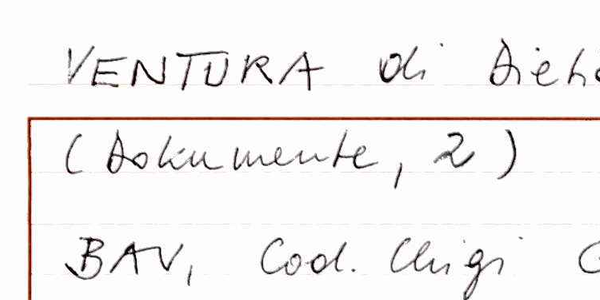 VENTURA di
(Dokumente, 2)
BAV, Cod. Chigi